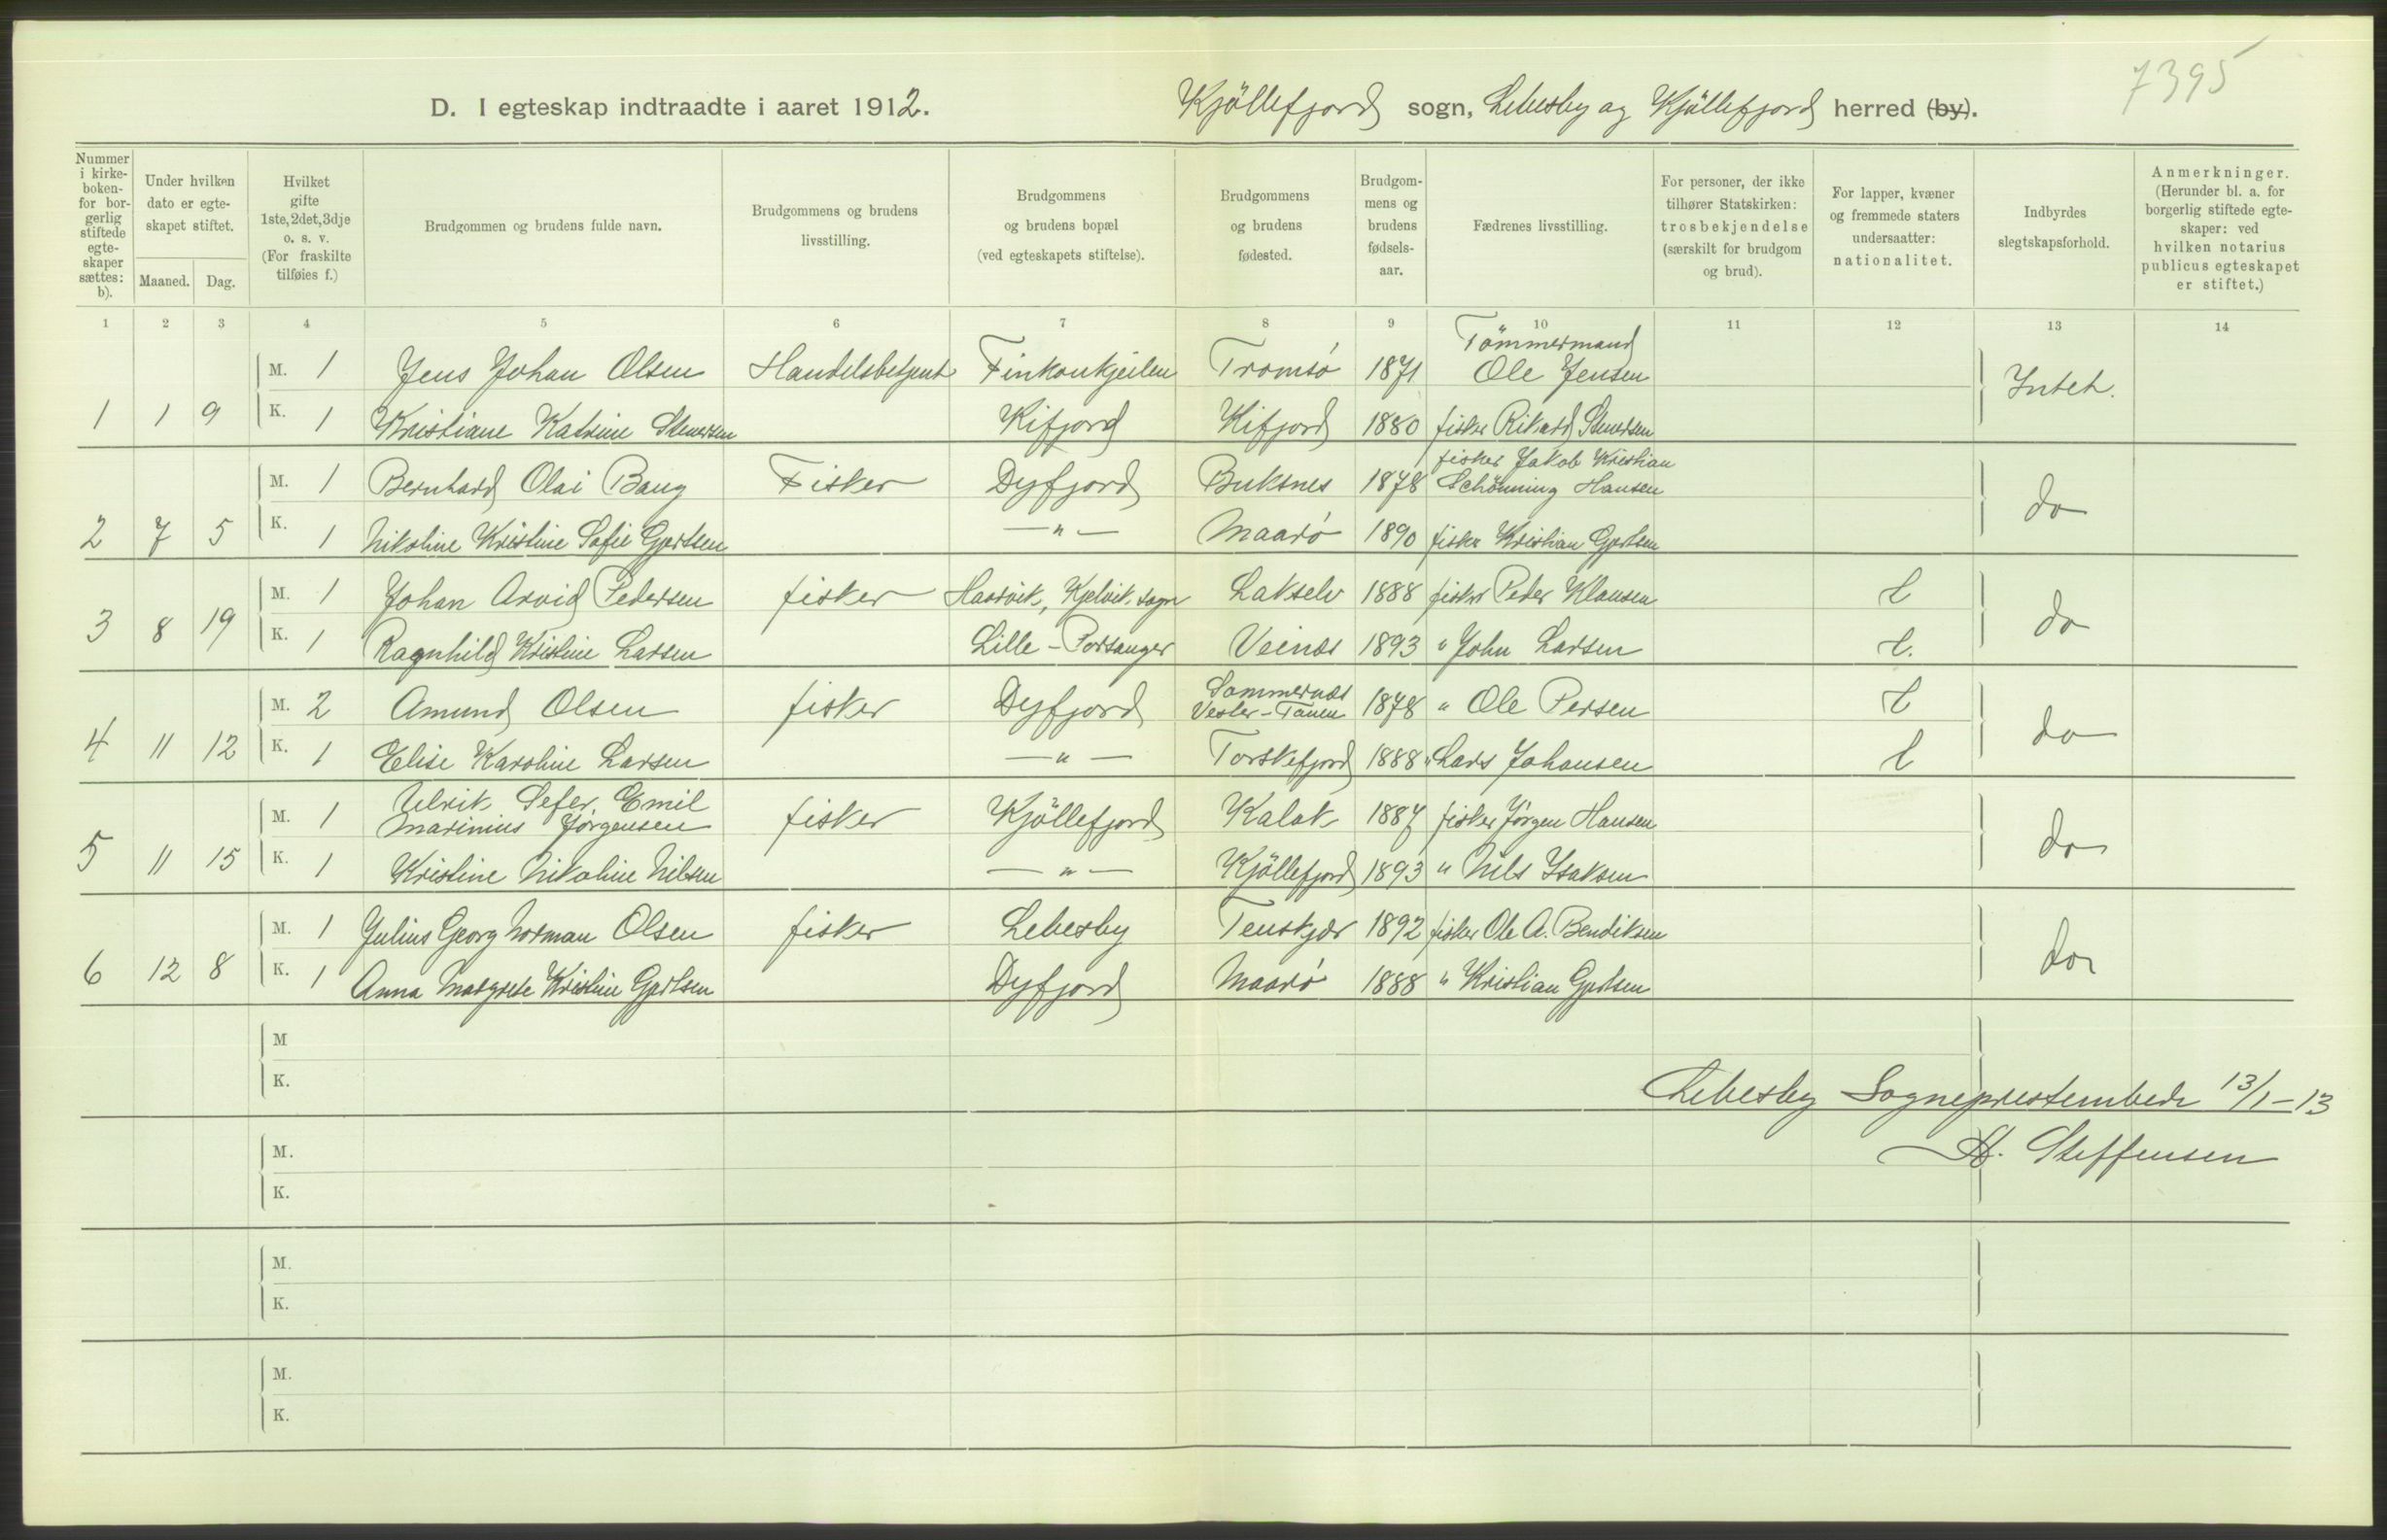 7395
D. I egteskap indtraadte i aaret 1912. Kjöllefjord sogn, Lebesby og Kjöllefjord herred (by).
Nummer i kirkeboken- for borgerlig stiftede egteskaper sættes: b).
Under hvilken dato er egteskapet stiftet.
Maaned. Dag.
Hvilket gifte 1ste, 2det, 3dje o. s. v. (For fraskilte tilføies f.)
Brudgommen og brudens fulde navn.
Brudgommens og brudens livsstilling.
Brudgommens og brudens bopæl (ved egteskapets stiftelse).
Brudgommens og brudens fødested.
Brudgommens og brudens fødselsaar.
Fædrenes livsstilling.
For personer, der ikke tilhører Statskirken: trosbekjendelse (særskilt for brudgom og brud).
For lapper, kvæner og fremmede staters undersaatter: nationalitet.
Indbyrdes slegtskapsforhold.
Anmerkninger. (Herunder bl. a. for borgerlig stiftede egteskaper: ved hvilken notarius publicus egteskapet er stiftet.)
1 2 3 4 5 6 7 8 9 10 11 12 13 14
M. 1 Jens Johan Olsen Handelsbetjent Finkonkjeilen Tromsö 1871 Tömmermand Ole Jensen Intet.
1 1 9 K. 1 Kristiane Katrine Stenersen Kifjord Kifjord 1880 fisker Rikard Stenersen
M. 1 Bernhard Olai Baug Fisker Dyfjord Buksnes 1878 fisker Jakob Kristian Schönning Hansen do
2 7 5 K. 1 Nikoline Kristine Sofie Gjertsen — " — Maarö 1890 fisker Kristian Gjertsen
M. 1 Johan Arvid Pedersen fisker Haarvik, Kjelvik sogn Lakselv 1888 fisker Peder Klausen L do
3 8 19 K. 1 Ragnhild Kristine Larsen Lille-Porsanger Veines 1893 " John Larsen L.
M. 2 Amund Olsen fisker Dyfjord Sommernes Vester-Tanen 1878 " Ole Persen L do
4 11 12 K. 1 Elise Karoline Larsen — " — Torskefjord 1888 " Lars Johansen L
M. 1 Ulrik Peter Emil Marinius Jörgensen fisker Kjöllefjord Kalak 1887 fisker Jörgen Hansen do
5 11 15 K. 1 Kristine Nikoline Nilsen — " — Kjöllefjord 1893 " Nils Isaksen
M. 1 Julius Georg Norman Olsen fisker Lebesby Tenskjær 1892 fisker Ole A. Bendiksen do
6 12 8 K. 1 Anna Margrete Kristine Gjertsen Dyfjord Maarö 1888 " Kristian Gjertsen
M
K.
Lebesby Sogneprestembede 13/1-13
M.
A. Steffensen
K.
M.
K.
M.
K.